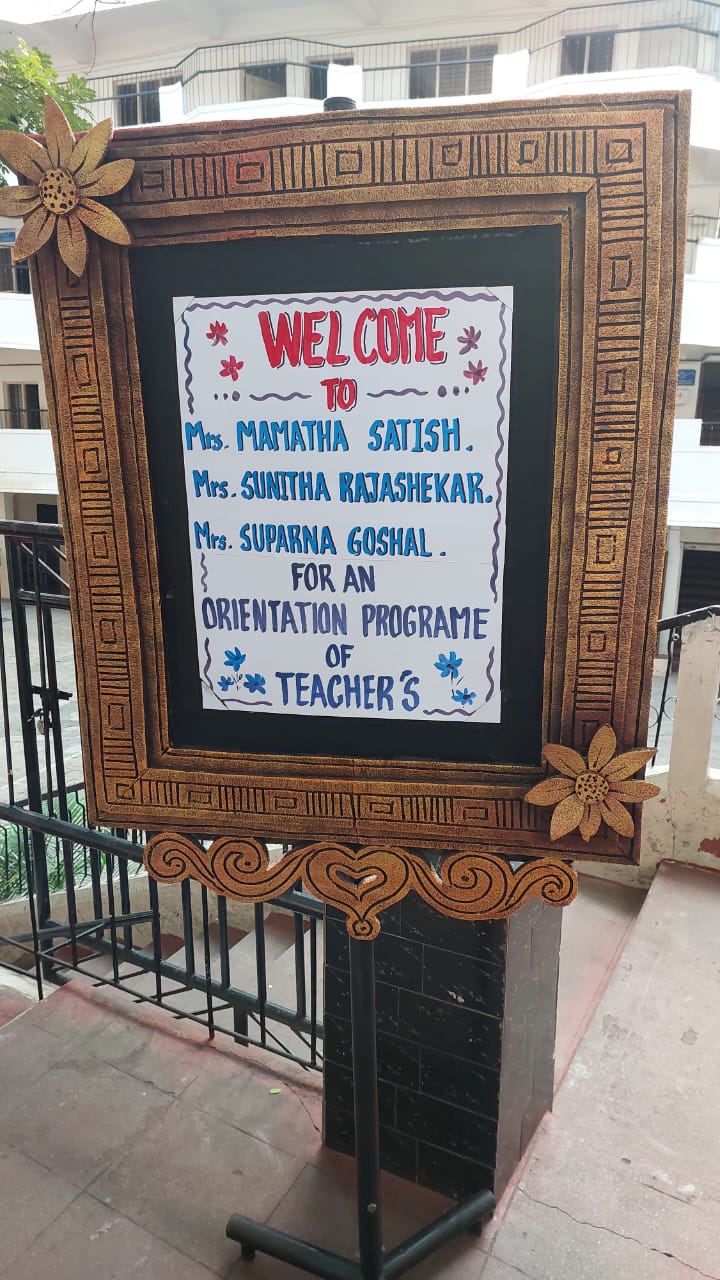 WELCOME
TO
Mrs. MAMATHA SATISH.
Mrs. SUNITHA RAJASHEKAR.
Mrs. SUPARNA GOSHAL.
FOR AN
ORIENTATION PROGRAME
OF
TEACHER'S